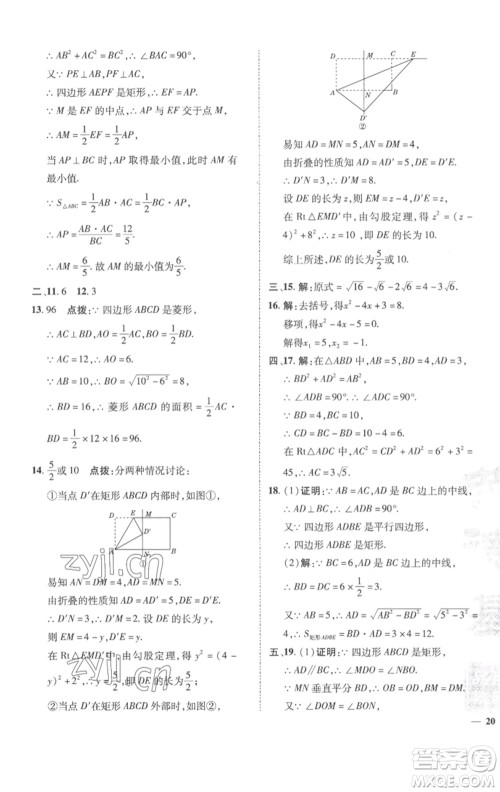 ∴ AB²+AC²=BC²,∴ ∠BAC=90°,
又∵ PE⊥AB,PF⊥AC,
∴ 四边形 AEPF 是矩形.
∵ M 是 EF 的中点,∴ EF 与 AP 交于点 M,
∴ AM=1/2 EF=1/2 AP.
当 AP⊥BC 时,AP 取得最小值,此时 AM 有
最小值.
∵ S△ABC=1/2 AB·AC=1/2 BC·AP,
∴ AP=AB·AC/BC=12/5.
∴ AM=6/5.故 AM 的最小值为6/5.
二、11.6 12.3
13.96 点拨:∵ 四边形 ABCD 是菱形,
∴ AC⊥BD,AO=1/2 AC=6.
∵ AB=10,∴ BO=√(10²-6²)=8,
∴ BD=16,∴ 菱形 ABCD 的面积=1/2 AC·
BD=1/2×12×16=96.
14.5/2或10 点拨:分两种情况讨论:
①当点 D′在矩形 ABCD 内部时,如图①,
D E M C
D′
A N B
①
易知 AN=DM=4,AD=MN=5,
由折叠的性质知 AD=AD′=5,DE=D′E,
∴ D′N=3,∴ D′M=2.
设 DE 的长为 y,则 D′E=y,
∴ EM=4-y,
在 Rt△EMD′中,由勾股定理,得 y²=(4-
y)²+2²,∴ y=5/2,即 DE 的长为5/2;
②当点 D′在矩形 ABCD 外部时,如图②,
D M C E
A N B
D′
②
易知 AD=MN=5,AN=DM=4,
由折叠的性质知 AD=AD′=5.
∴ D′N=3,∴ D′M=8.
设 DE 的长为 z,则 D′E=z,∴ EM=z-4,
在 Rt△EMD′中,由勾股定理,得 z²=(z-
4)²+8²,∴ z=10,即 DE 的长为 10.
综上所述,DE 的长为5/2或 10.
三、15.解:原式=√16-√6-2√6=4-3√6.
16.解:去括号,得x²-4x+3=8,
移项,得x²-4x-5=0,
解得x₁=5,x₂=-1.
四、17.解:在△ABD 中,AB=5,AD=3,BD=4,
∴ BD²+AD²=4²+3²=5²=AB²,
∴ ∠ADB=90°.
∴ ∠BDC=90°.
∵ BD=4,∴ AC²=AD²+BC²-BD²=
45,∴ AC=3√5.
18.(1)证明:∵ AB=AC,AD 是 BC 边上的中线,
∴ AD⊥BC,∴ ∠ADB=90°,
又∵ 四边形 ADBE 是平行四边形,
∴ 四边形 ADBE 是矩形.
(2)解:∵ BC=6,AD 是 BC 边上的中线,
∴ BD=DC=6×1/2=3.
又∵ AB=5,∴ AD=√(AB²-BD²)=√(5²-3²)=4.
∴ S矩形ADBE=AD·BD=4×3=12.
五、19.(1)证明:∵ 四边形 ABCD 是矩形,
∴ AD∥BC,∴ ∠MDO=∠NBO.
∵ MN 垂直平分 BD,∴ OB=OD,
又∵ ∠DOM=∠BON,
20
zyjl.cn
答案圈
MXQE.COM